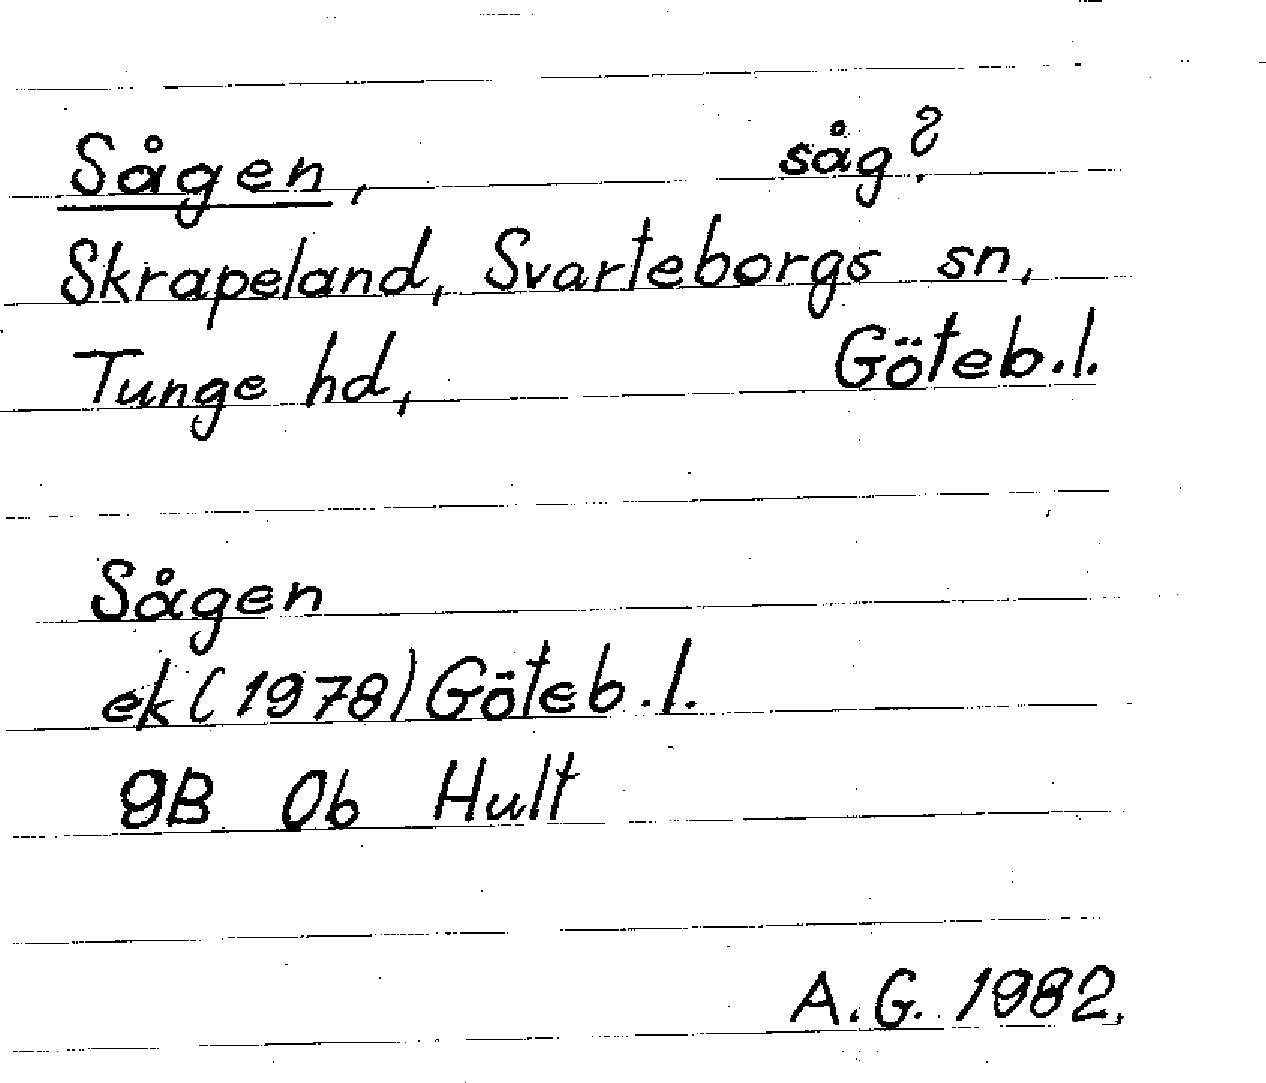 Sågen, såg?
Skrapeland, Svarteborgs sn,
Tunge hd, Göteb.l.
Sågen
ek (1978) Göteb.l.
9B 0b Hult
A.G. 1982.